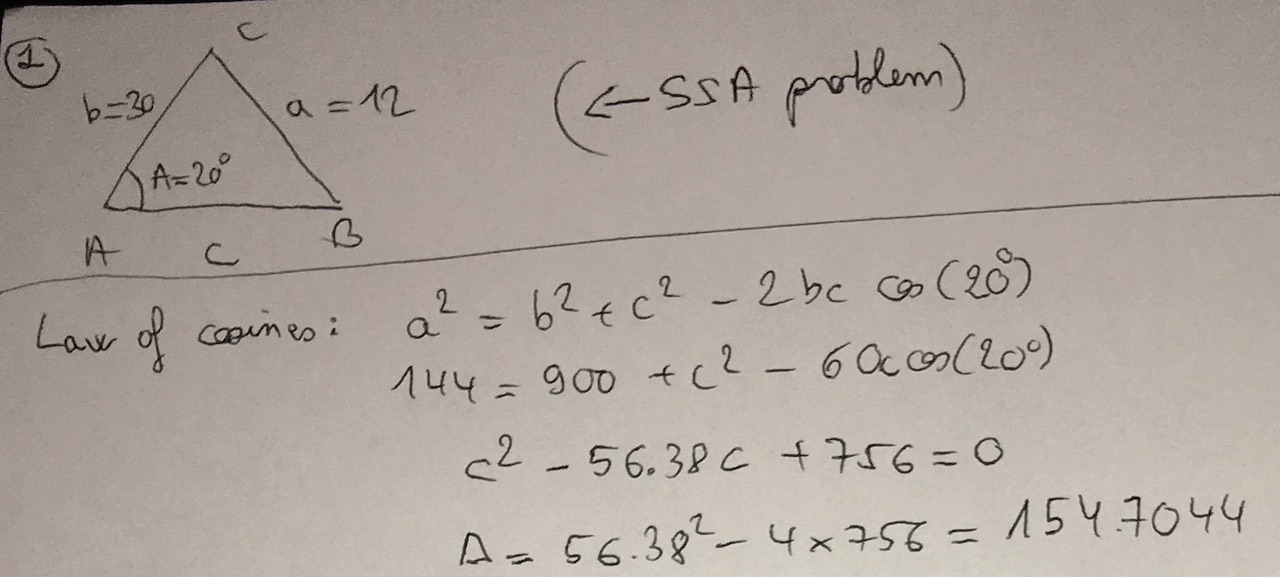 1
C
b=30
a = 12
(← SSA problem)
A=20°
A
c
B
Law of cosines: a² = b² + c² - 2bc cos(20°)
144 = 900 + c² - 60c cos(20°)
c² - 56.38c + 756 = 0
Δ = 56.38² - 4×756 = 154.7044